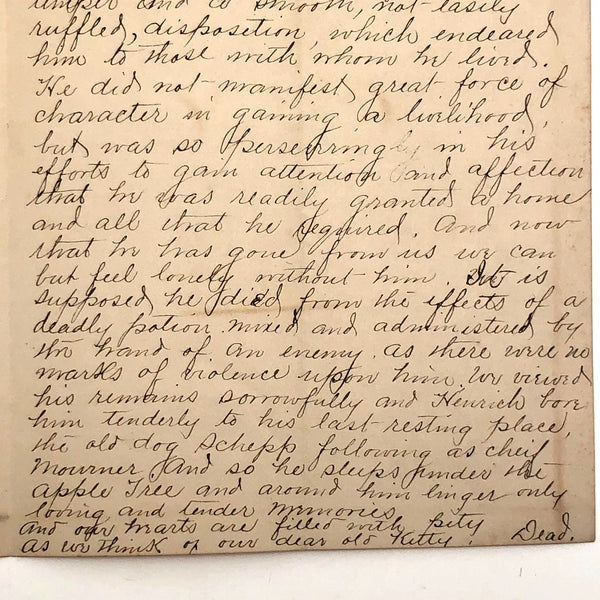 temper and a smooth, not easily
ruffled, disposition, which endeared
him to those with whom he lived.
He did not manifest great force of
character in gaining a livlihood,
but was so perseringly in his
efforts to gain attention and affection
that he was readily granted a home
and all that he required. And now
that he has gone from us we can
but feel lonely without him. It is
supposed he died from the effects of a
deadly potion mixed and administered by
the hand of an enemy. as there were no
marks of violence upon him. We viewed
his remains sorrowfully and Henrich bore
him tenderly to his last resting place,
the old dog Schepp following as cheif
Mourner. And so he sleeps under the
apple Tree and around him linger only
loving and tender memories
and our hearts are filled with pity
as we think of our dear old Kitty. Dead.